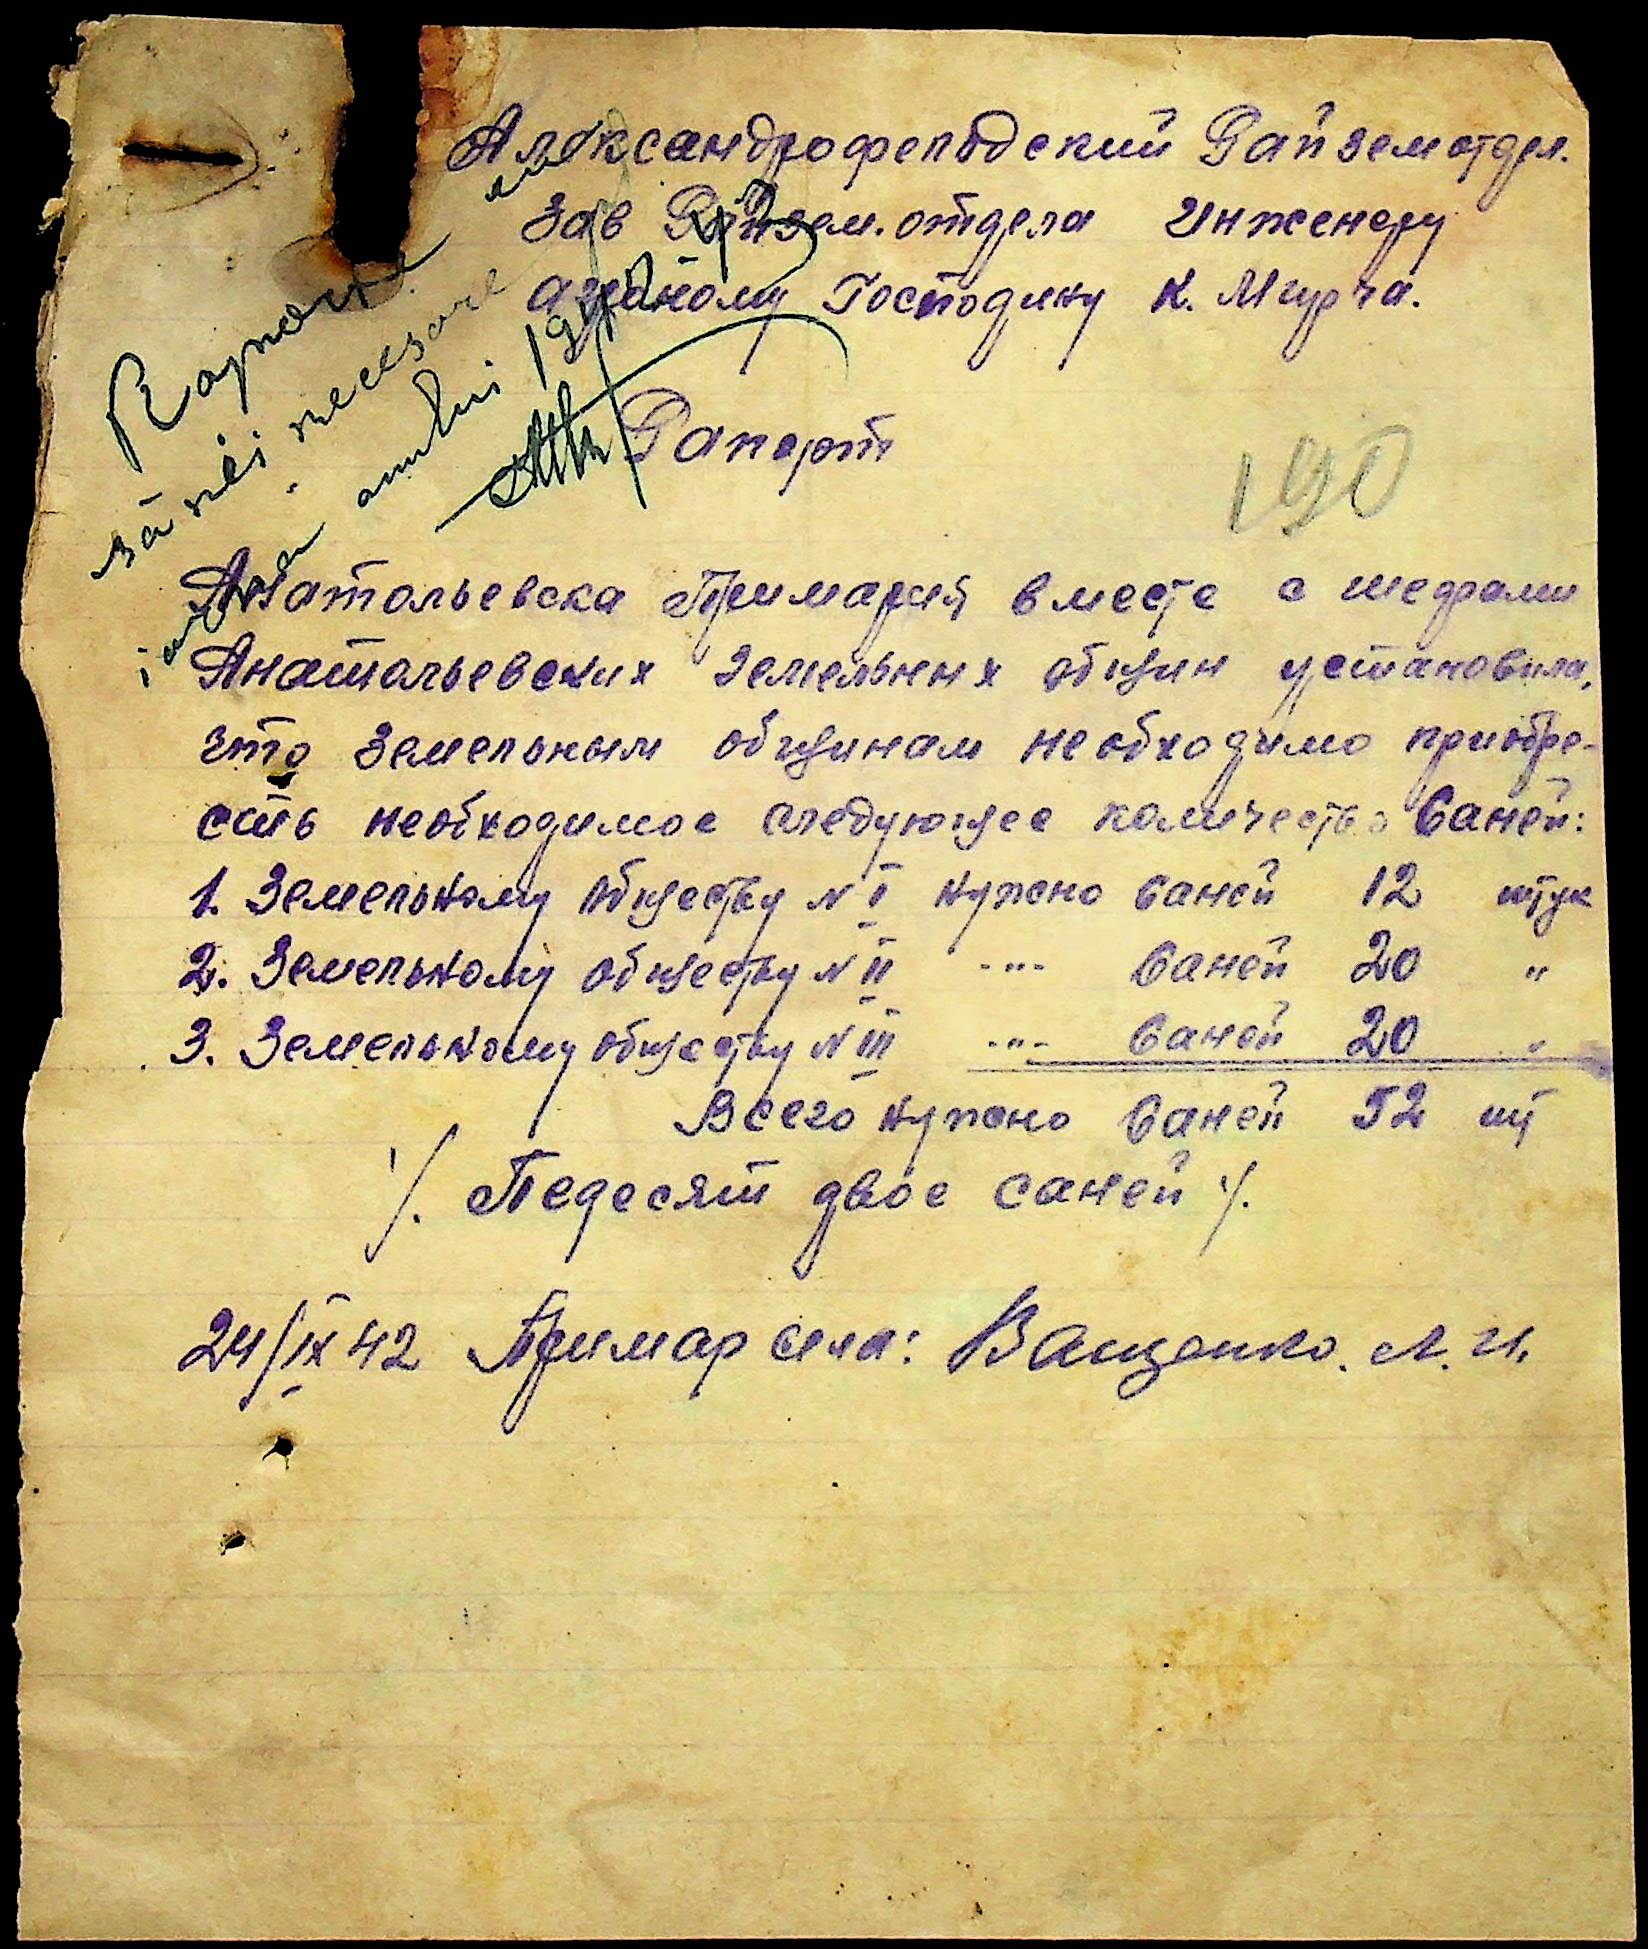 Александрофельдский Райземотдел.
Зав Райзем. отдела Инженеру
аграному Господину К. Мирча.
Raport
sănii necesare
iarna anului 1942-43
Рапорт
190
Анатольевска Примария вместе с шефами
Анатольевских Земельных общин установила,
что Земельным общинам необходимо приобре-
сть необходимое следующее количество Саней:
1. Земельному Обществу N I нужно Саней 12 штук
2. Земельному обществу N II -"- Саней 20 "
3. Земельному обществу N III -"- Саней 20 "
Всего нужно Саней 52 шт
/. Педесят двое саней /.
24/IX 42 Примар села: Ващенко. Л. И.